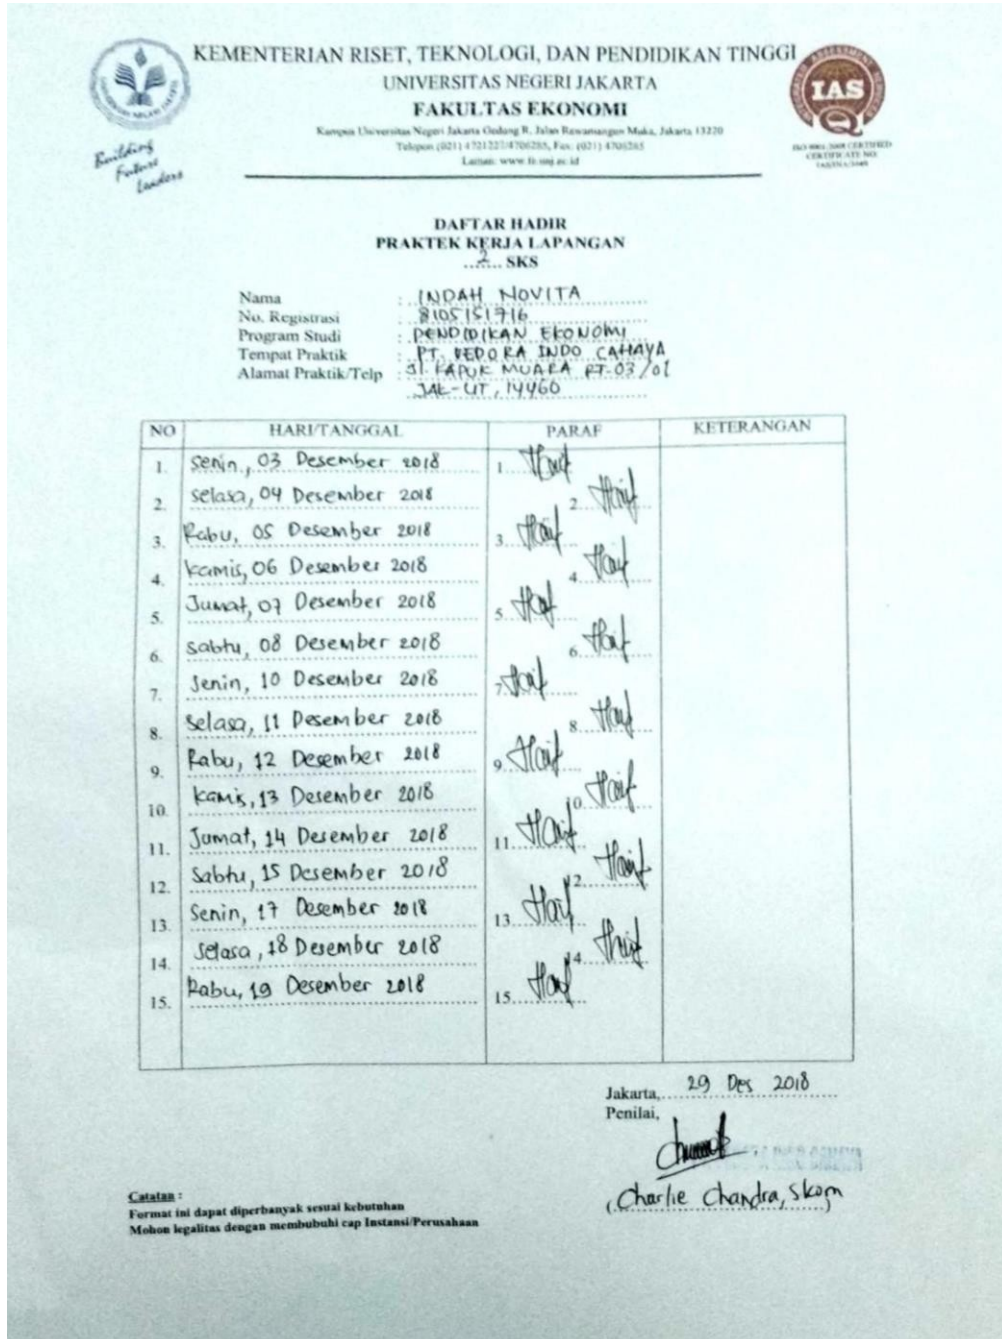 KEMENTERIAN RISET, TEKNOLOGI, DAN PENDIDIKAN TINGGI
UNIVERSITAS NEGERI JAKARTA
FAKULTAS EKONOMI
Kampus Universitas Negeri Jakarta Gedung R, Jalan Rawamangun Muka, Jakarta 13220
Telepon (021) 4721227/4706285, Fax: (021) 4706285
Laman: www.fe.unj.ac.id
Building
Future
Leaders
IAS
ISO 9001:2008 CERTIFIED
CERTIFICATE NO.
DAFTAR HADIR
PRAKTEK KERJA LAPANGAN
2 SKS
Nama : INDAH NOVITA
No. Registrasi : 8105151716
Program Studi : PENDIDIKAN EKONOMI
Tempat Praktik : PT. VEDORA INDO CAHAYA
Alamat Praktik/Telp : Jl. KAPUK MUARA RT.03/01
JAK-UT, 14460
NO HARI/TANGGAL PARAF KETERANGAN
1. Senin, 03 Desember 2018 1.
2. Selasa, 04 Desember 2018 2.
3. Rabu, 05 Desember 2018 3.
4. Kamis, 06 Desember 2018 4.
5. Jumat, 07 Desember 2018 5.
6. Sabtu, 08 Desember 2018 6.
7. Senin, 10 Desember 2018 7.
8. Selasa, 11 Desember 2018 8.
9. Rabu, 12 Desember 2018 9.
10. Kamis, 13 Desember 2018 10.
11. Jumat, 14 Desember 2018 11.
12. Sabtu, 15 Desember 2018 12.
13. Senin, 17 Desember 2018 13.
14. Selasa, 18 Desember 2018 14.
15. Rabu, 19 Desember 2018 15.
Jakarta, 29 Des 2018
Penilai,
(Charlie Chandra, Skom)
Catatan :
Format ini dapat diperbanyak sesuai kebutuhan
Mohon legalitas dengan membubuhi cap Instansi/Perusahaan